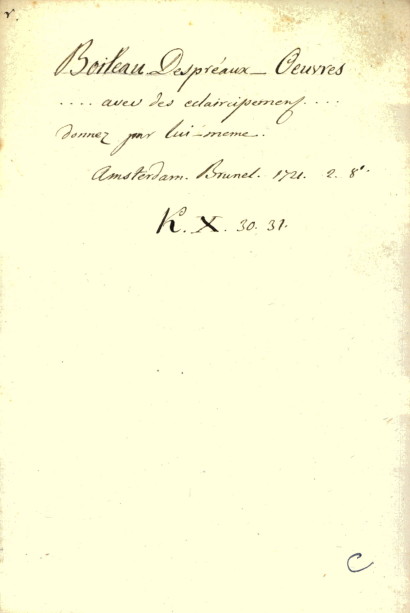 v.
Boileau Despréaux _ Oeuvres
.... avec des eclaircissemens ....
donnez par lui-meme.
Amsterdam. Brunel. 1721. 2. 8°.
K. X. 30. 31.
C